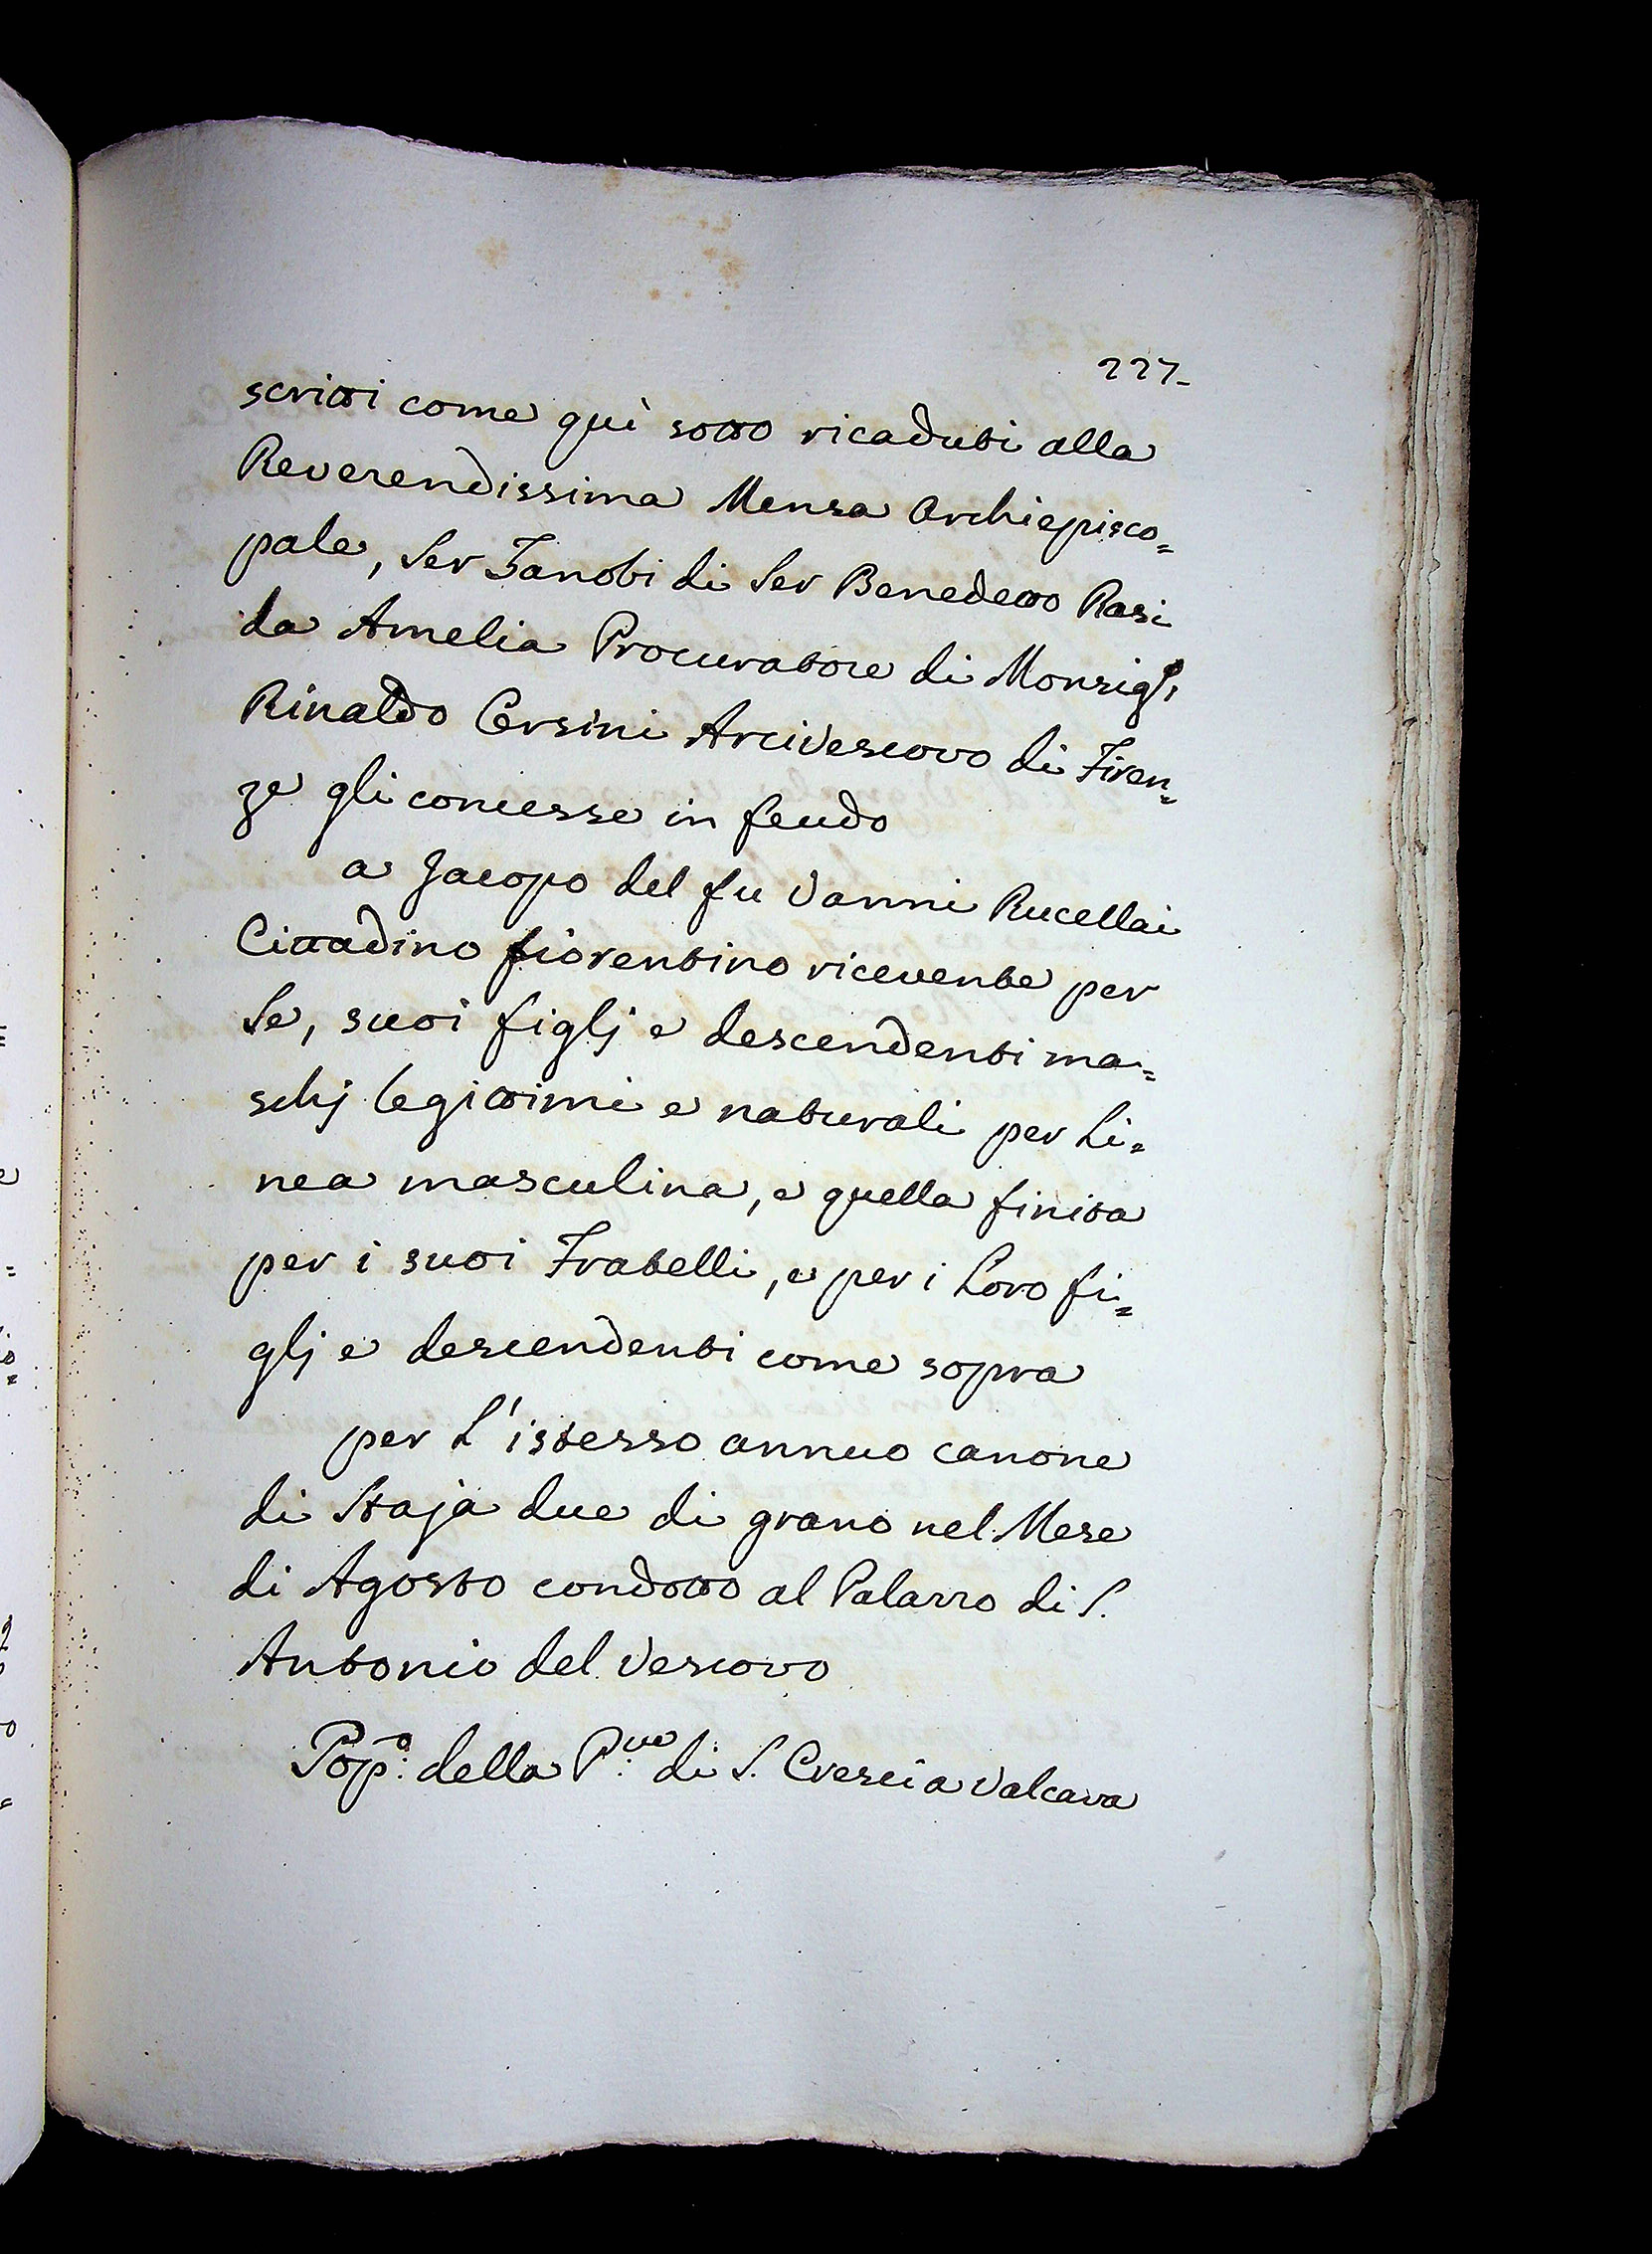 227.
scritti come quì sotto ricaduti alla
Reverendissima Mensa Archiepisco=
pale, Ser Zanobi di Ser Benedetto Rasi
da Amelia Procuratore di Monsig.r
Rinaldo Orsini Arcivescovo di Firen=
ze gli concesse in feudo
a Jacopo del fu Vanni Rucellai
Cittadino fiorentino ricevente per
Se, suoi figlj e descendenti ma=
schj legittimi e naturali per Li=
nea masculina, e quella finita
per i suoi Fratelli, e per i Loro fi=
glj e descendenti come sopra
per L'istesso annuo canone
di Staja due di grano nel Mese
di Agosto condotto al Palazzo di S.
Antonio del Vescovo
Pop.o della P.ve di S. Cresci a Valcava